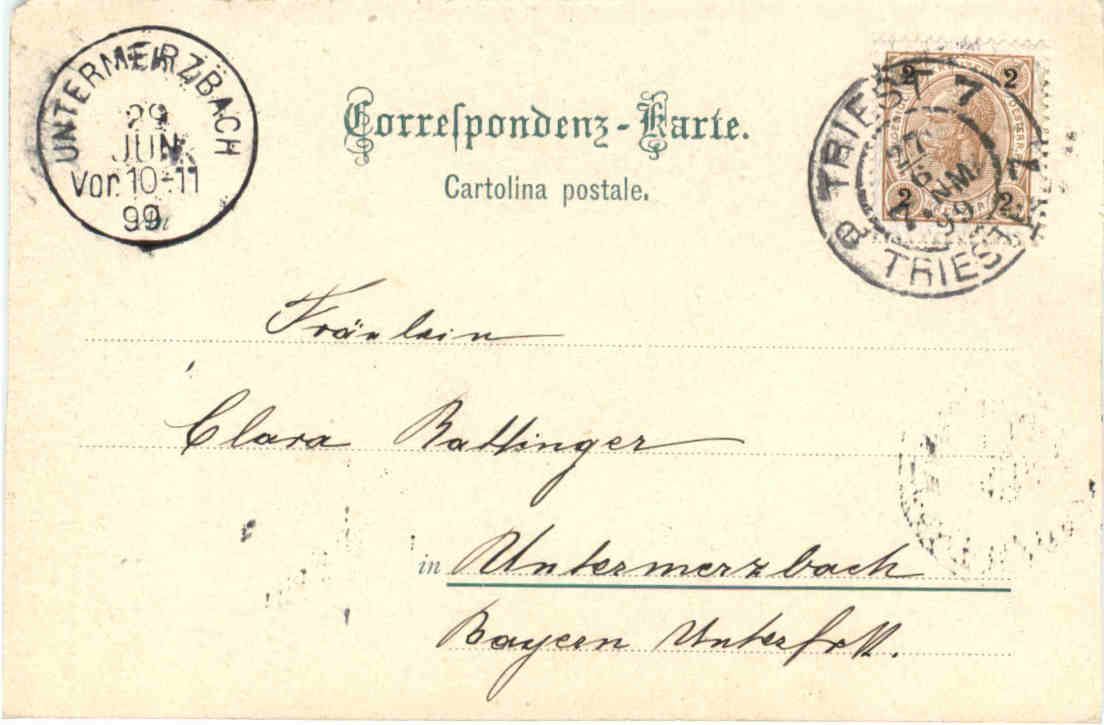 UNTERMERZBACH
29
JUN.
Vor. 10-11
99
Correspondenz-Karte.
Cartolina postale.
2 2
2 2
TRIEST 7
27
NM
99
TRIEST
Fräulein
Clara Battinger
in Untermerzbach
Bayern Unterfrk.